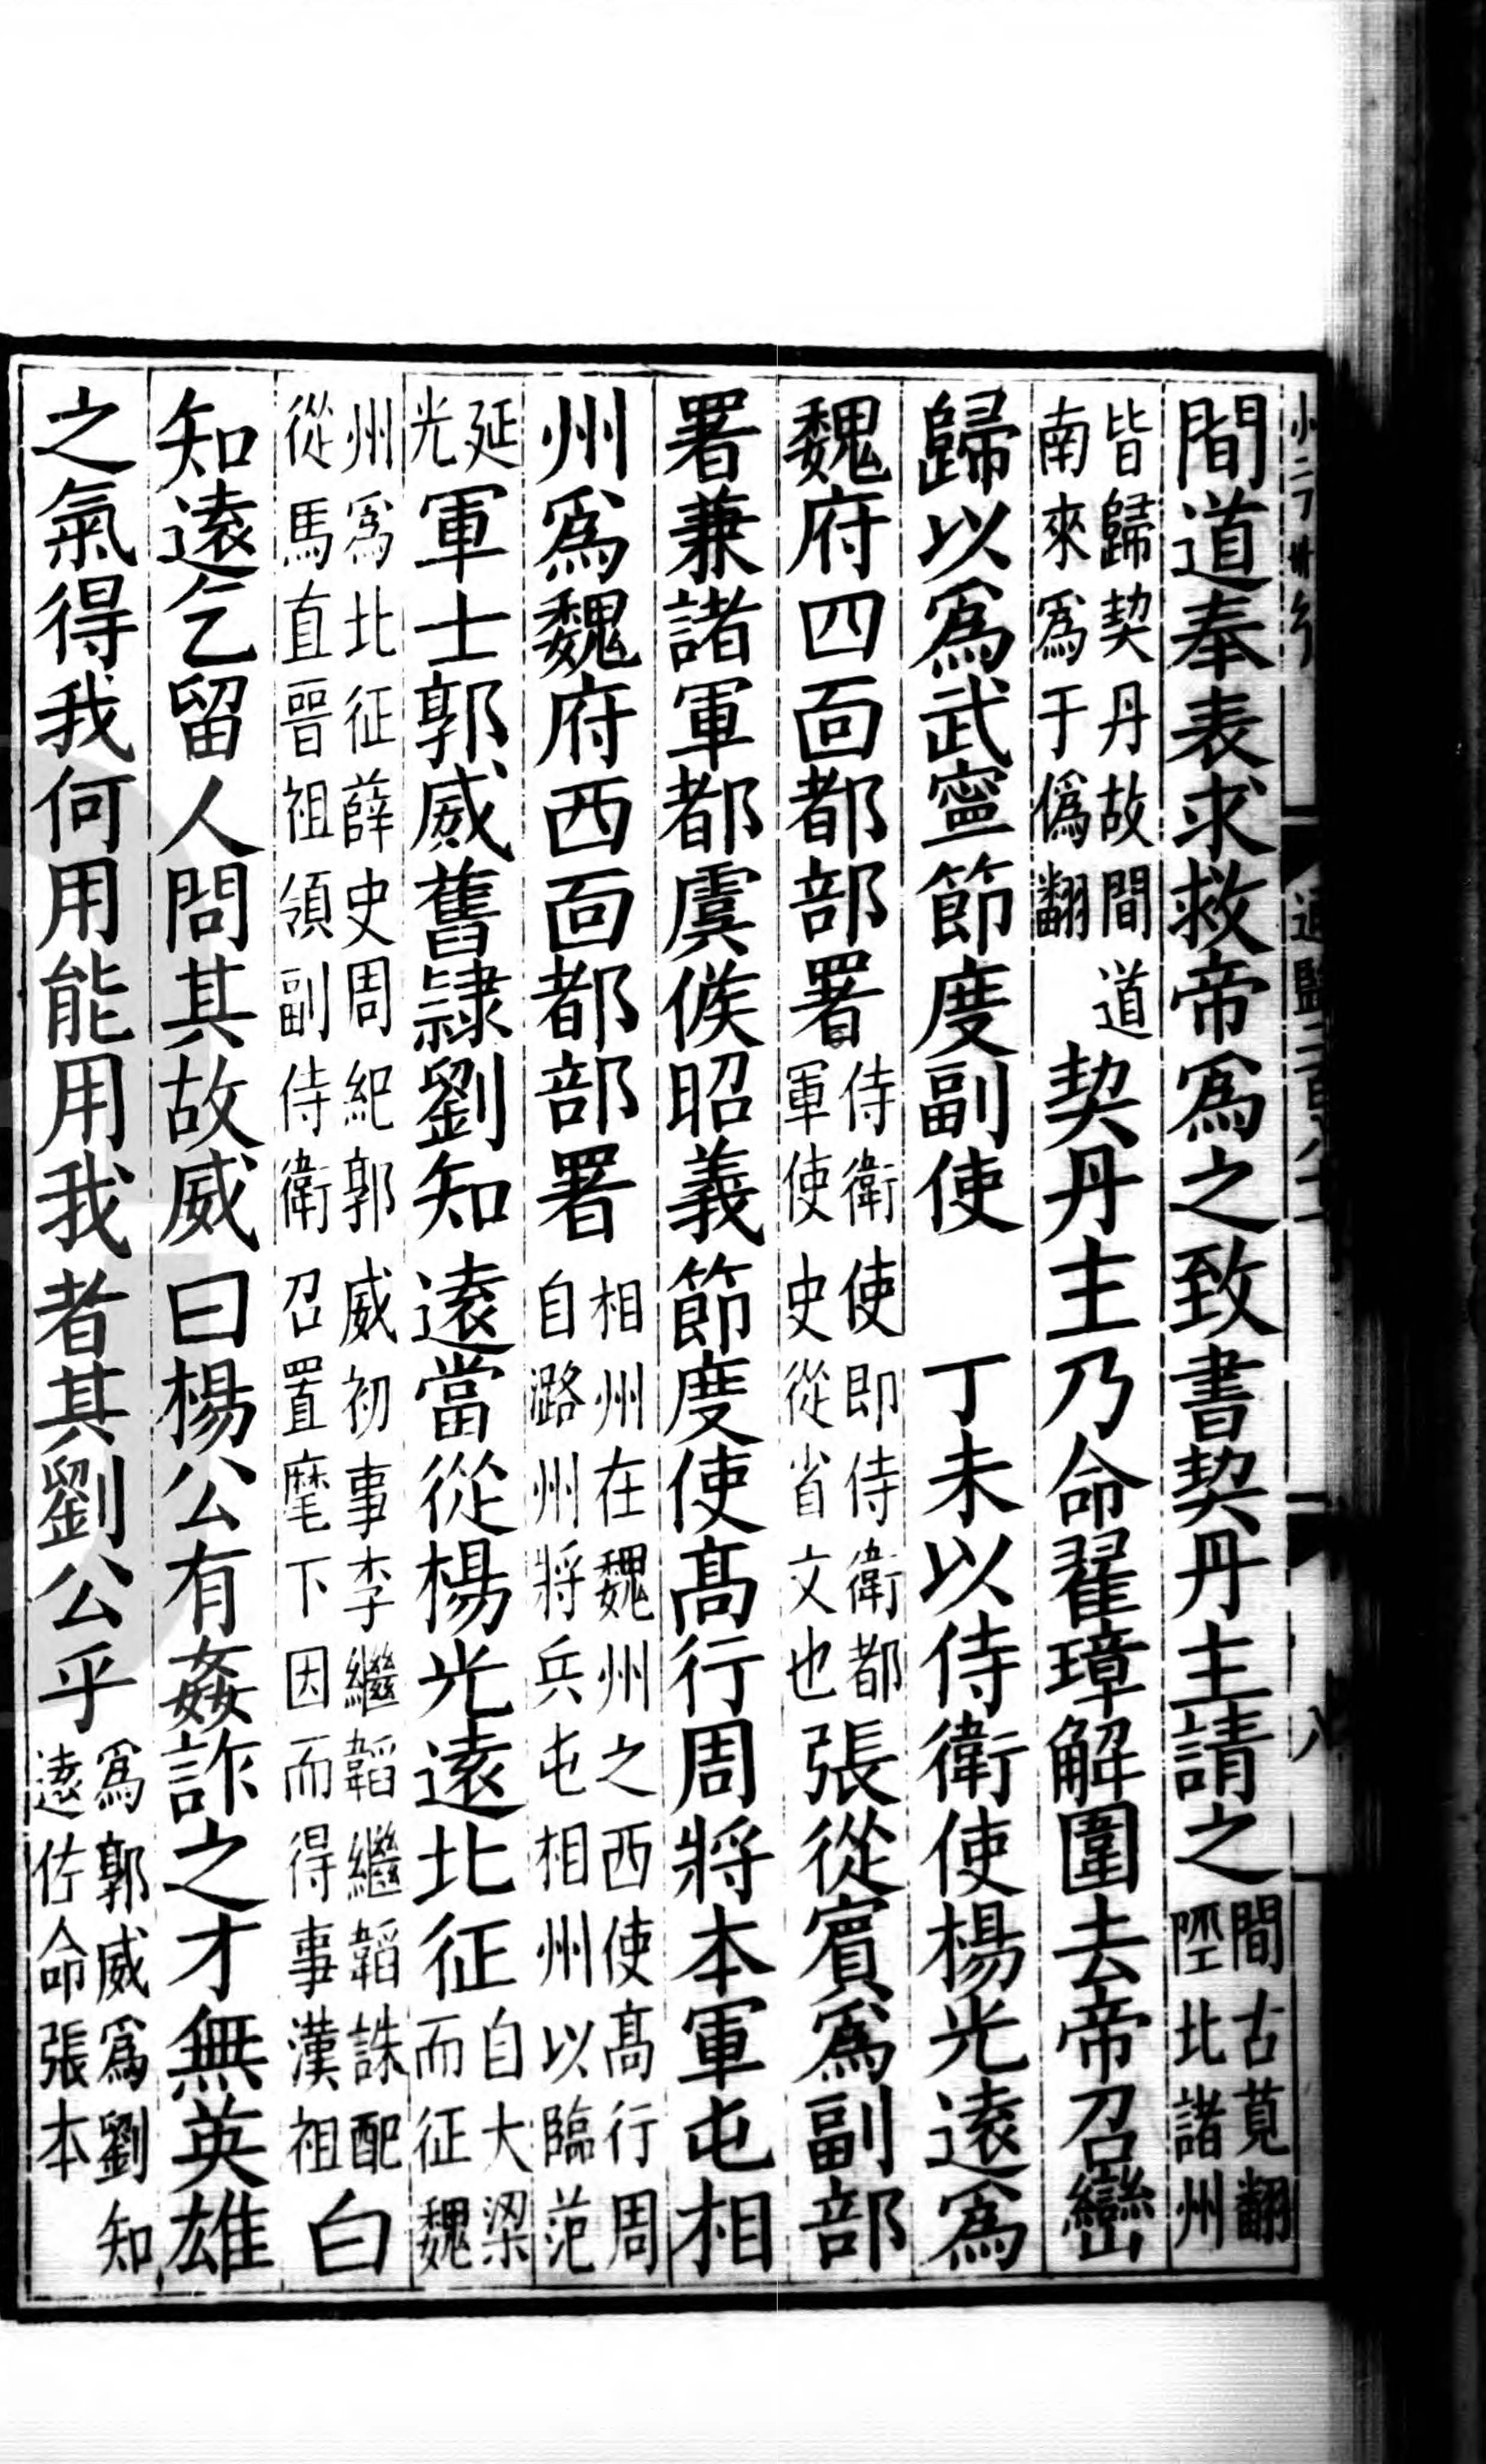 間道奉表求救帝爲之致書契丹主請之間古莧翻陘北諸州
皆歸契丹故間道南來爲于僞翻契丹主乃命翟璋解圍去帝召巒
歸以爲武寧節度副使　丁未以侍衛使楊光遠爲
魏府四面都部署侍衛使即侍衛都軍使史從省文也張從賓爲副部
署兼諸軍都虞候昭義節度使高行周將本軍屯相
州爲魏府西面都部署相州在魏州之西使高行周自潞州將兵屯相州以臨范
延光軍士郭威舊隸劉知遠當從楊光遠北征自大梁而征魏
州爲北征薛史周紀郭威初事李繼韜繼韜誅配從馬直晉祖領副侍衛召置麾下因而得事漢祖白
知遠乞留人問其故威曰楊公有姦詐之才無英雄
之氣得我何用能用我者其劉公乎爲郭威爲劉知遠佐命張本